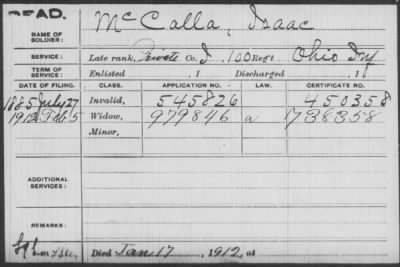 DEAD.
NAME OF SOLDIER: McCalla, Isaac
SERVICE: Late rank, Private Co. I, 100 Reg't Ohio Inf
TERM OF SERVICE: Enlisted , 1 Discharged , 1
DATE OF FILING. CLASS. APPLICATION NO. LAW. CERTIFICATE NO.
1885 July 27 Invalid, 545826 450358
1912 Feb 5 Widow, 979846 a 738358
Minor,
ADDITIONAL SERVICES:
REMARKS:
Died Jan. 17, 1912, at